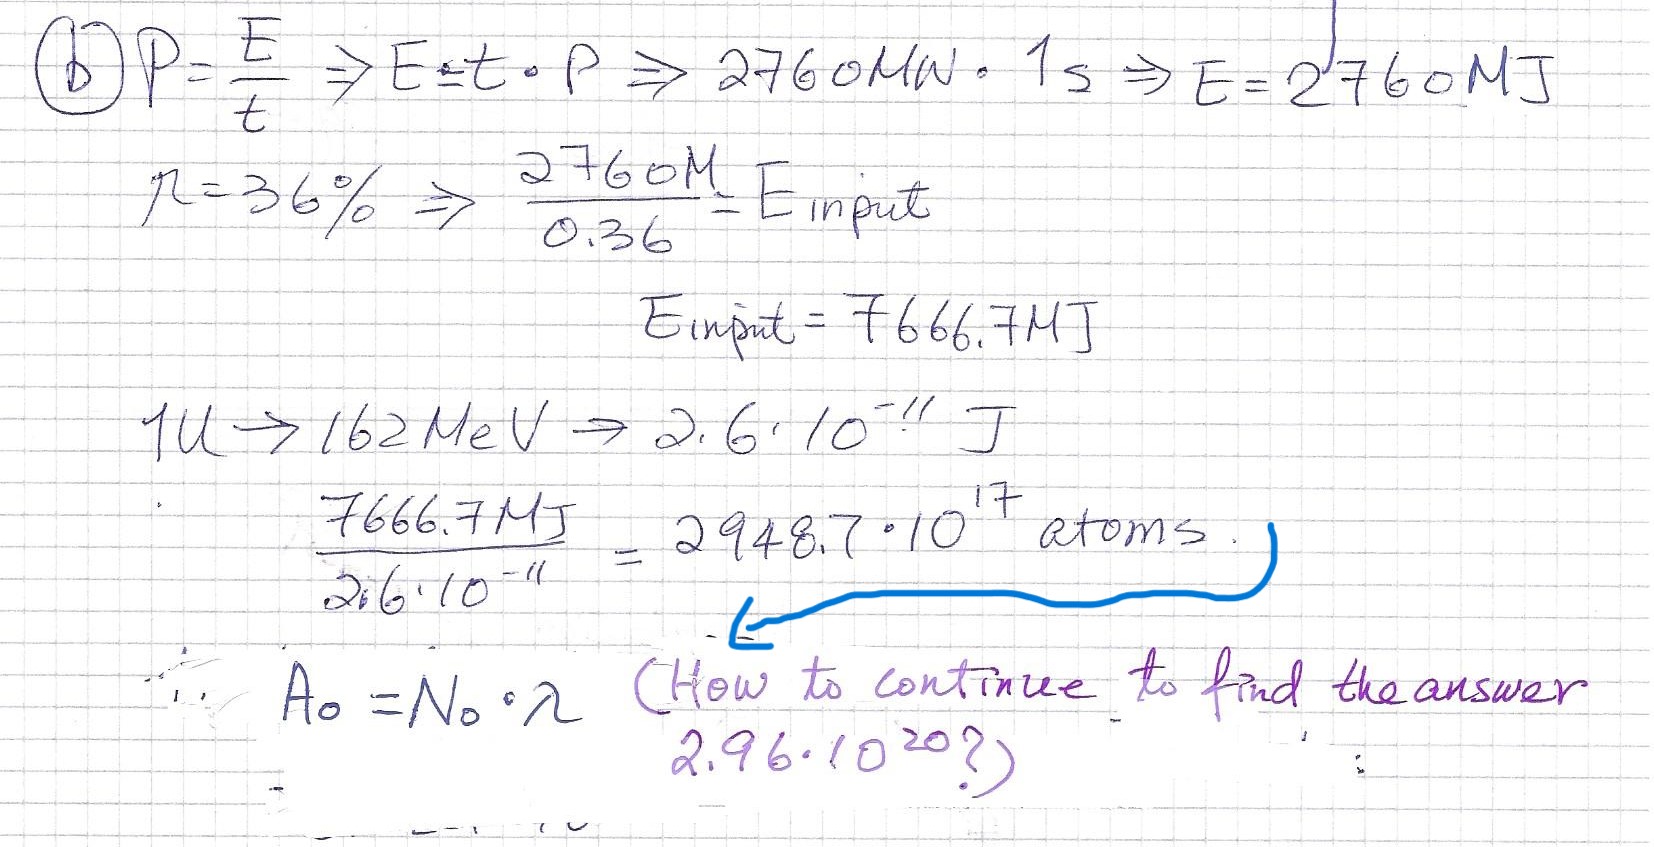 (b) P = E/t ⇒ E = t · P ⇒ 2760MW · 1s ⇒ E = 2760MJ
η = 36% ⇒ 2760M/0.36 = E input
E input = 7666.7MJ
1U → 162 MeV → 2.6 · 10⁻¹¹ J
7666.7MJ/2.6·10⁻¹¹ = 2948.7 · 10¹⁷ atoms.
A₀ = N₀ · λ (How to continue to find the answer
2.96 · 10²⁰?)